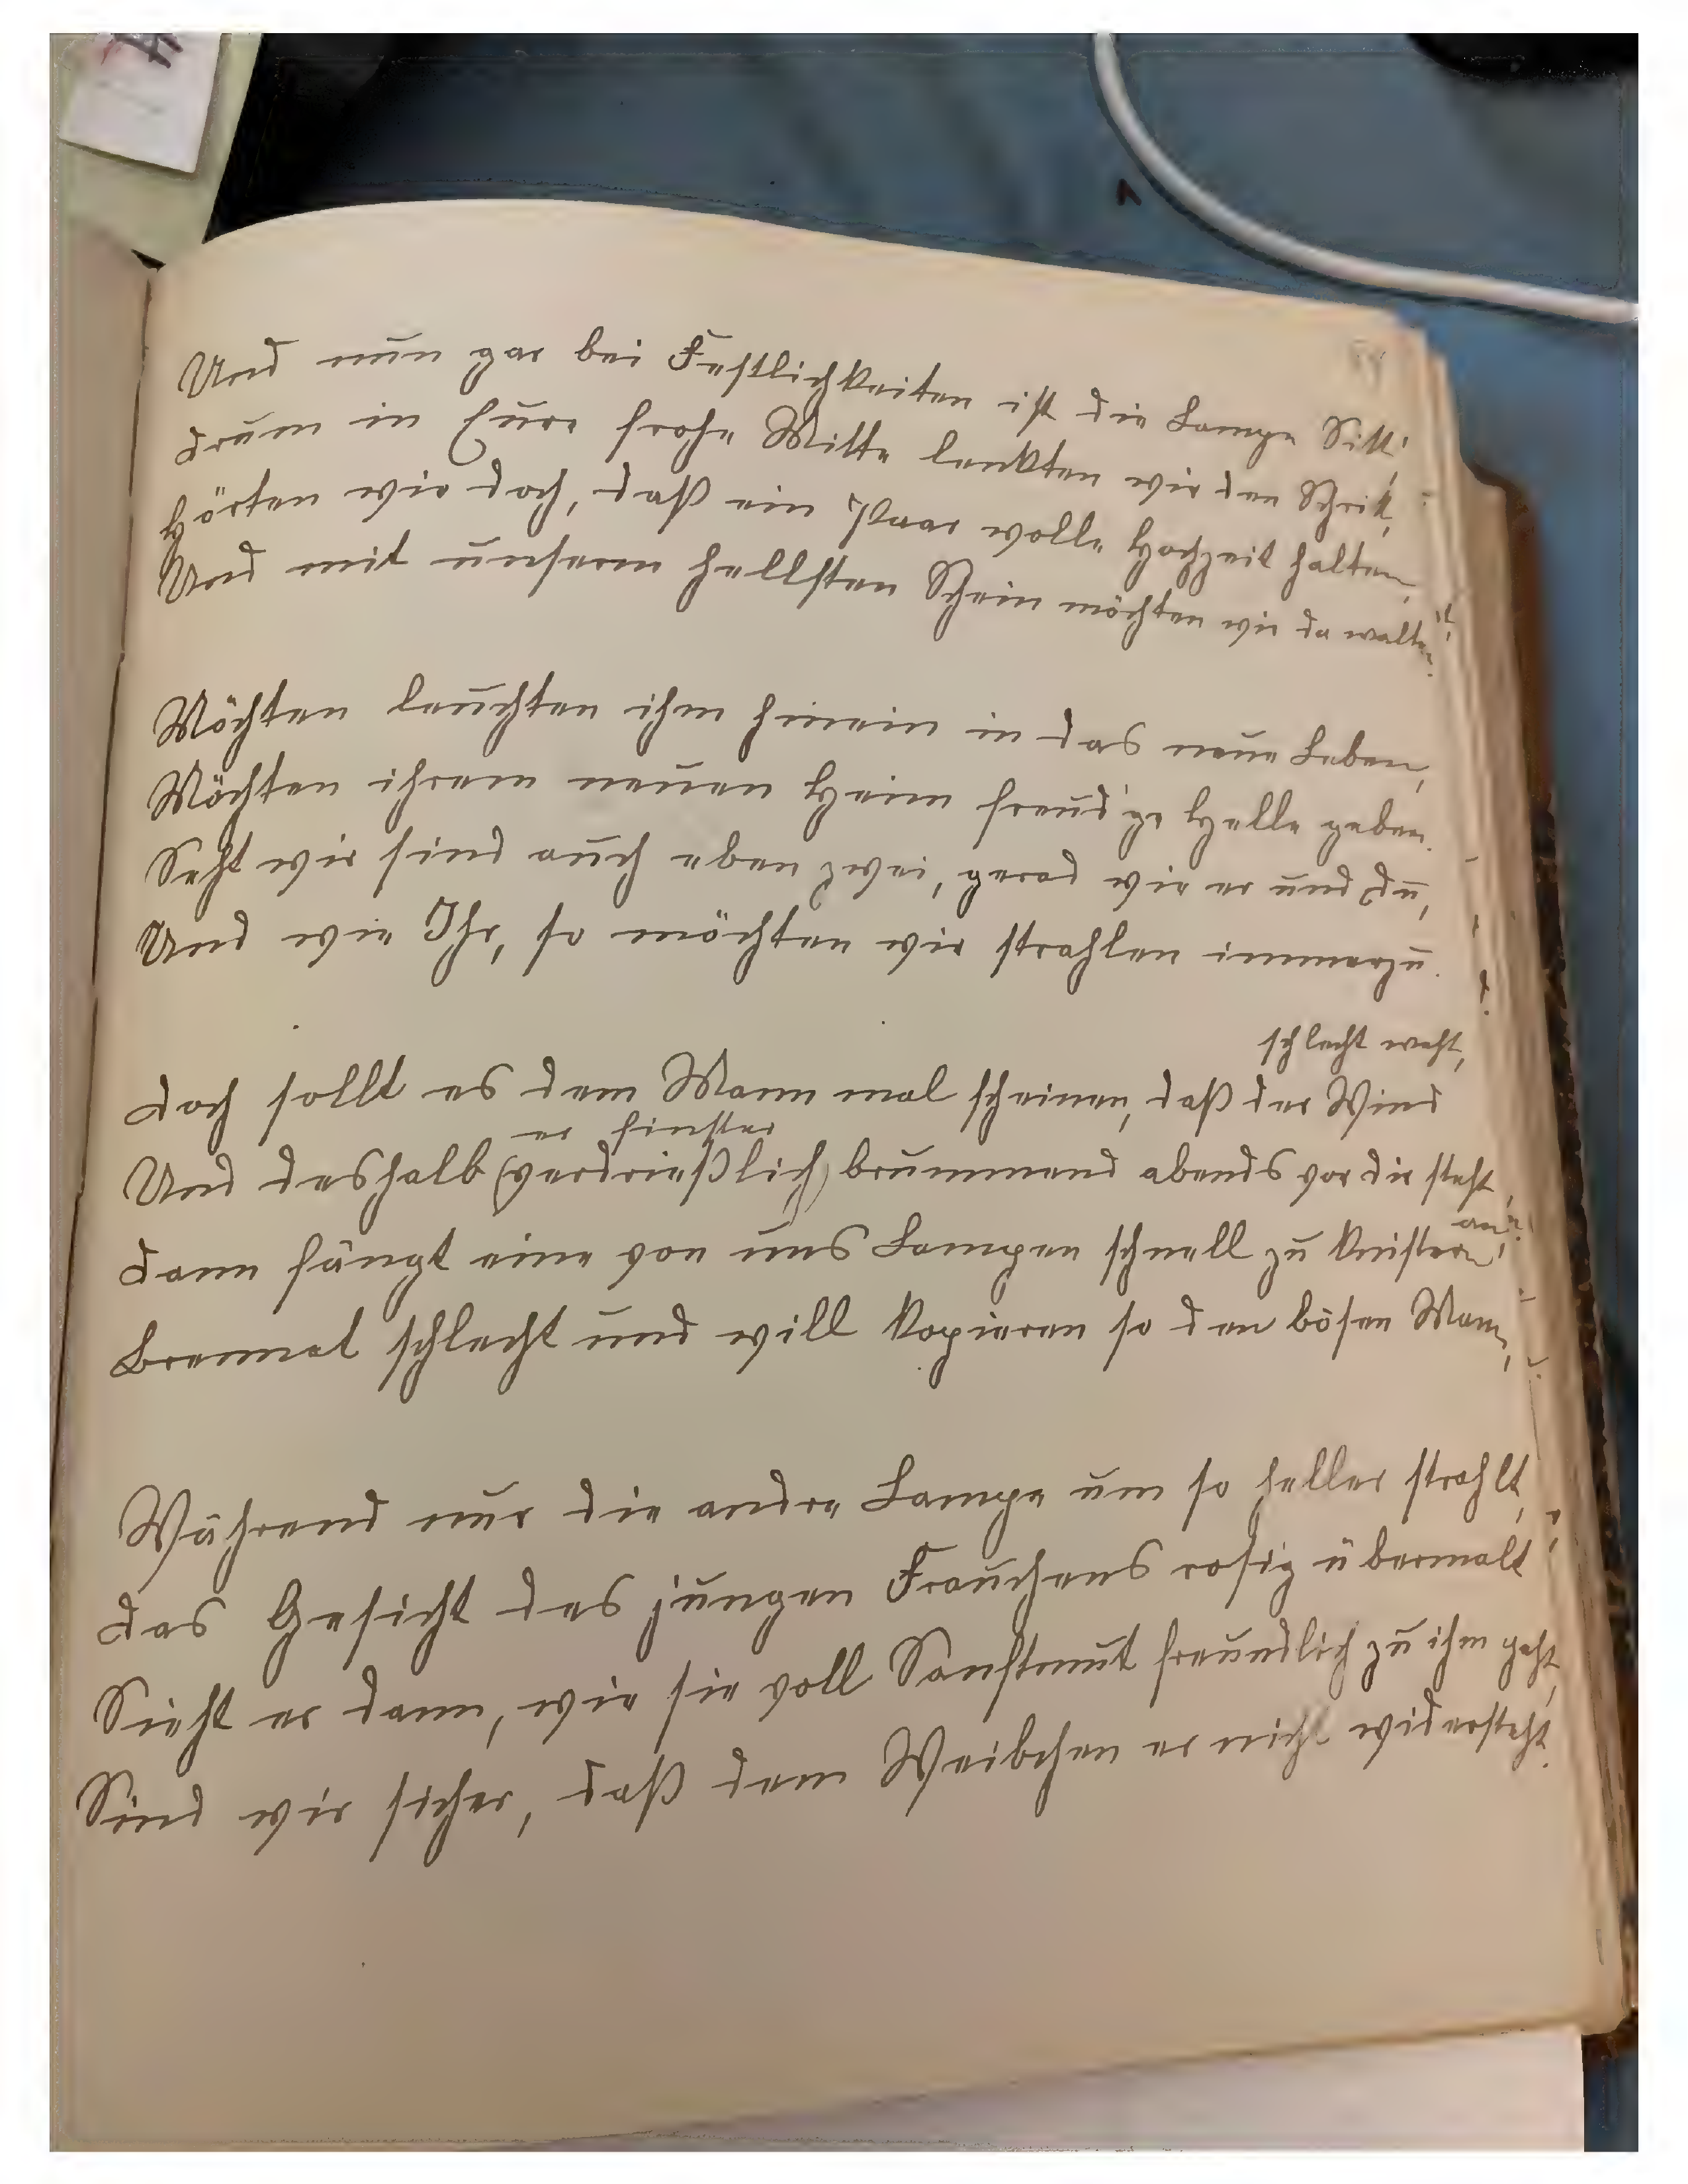 Und nun gar bei Festlichkeiten ist die Lampe Sitt'
Drum in Eure frohe Mitte lenkten wir den Schritt,
Hörten wir doch, daß ein Paar wolle Hochzeit halten,
Und mit unserm hellsten Schein möchten wir da walten.
Möchten leuchten ihm hinein in das neue Leben,
Möchten ihrem neuen Heim freud'ge Helle geben.
Seht wir sind auch eben zwei, gerad wie er und du,
Und wie Ihr, so möchten wir strahlen immerzu.
schlecht weht,
Doch sollt es dem Mann mal scheinen, daß der Wind
er finster
Und deshalb (verdrießlich) brummend abends vor dir steht,
an,
Dann fängt eine von uns Lampen schnell zu knistern
Brennet schlecht und will kopieren so den bösen Mann,
Während nur die andre Lampe um so heller strahlt,
Das Gesicht des jungen Frauchens rosig übermalt
Sieht er dann, wie sie voll Sanftmut freundlich zu ihm geht,
Sind wir sicher, daß dem Weibchen er nicht widersteht.